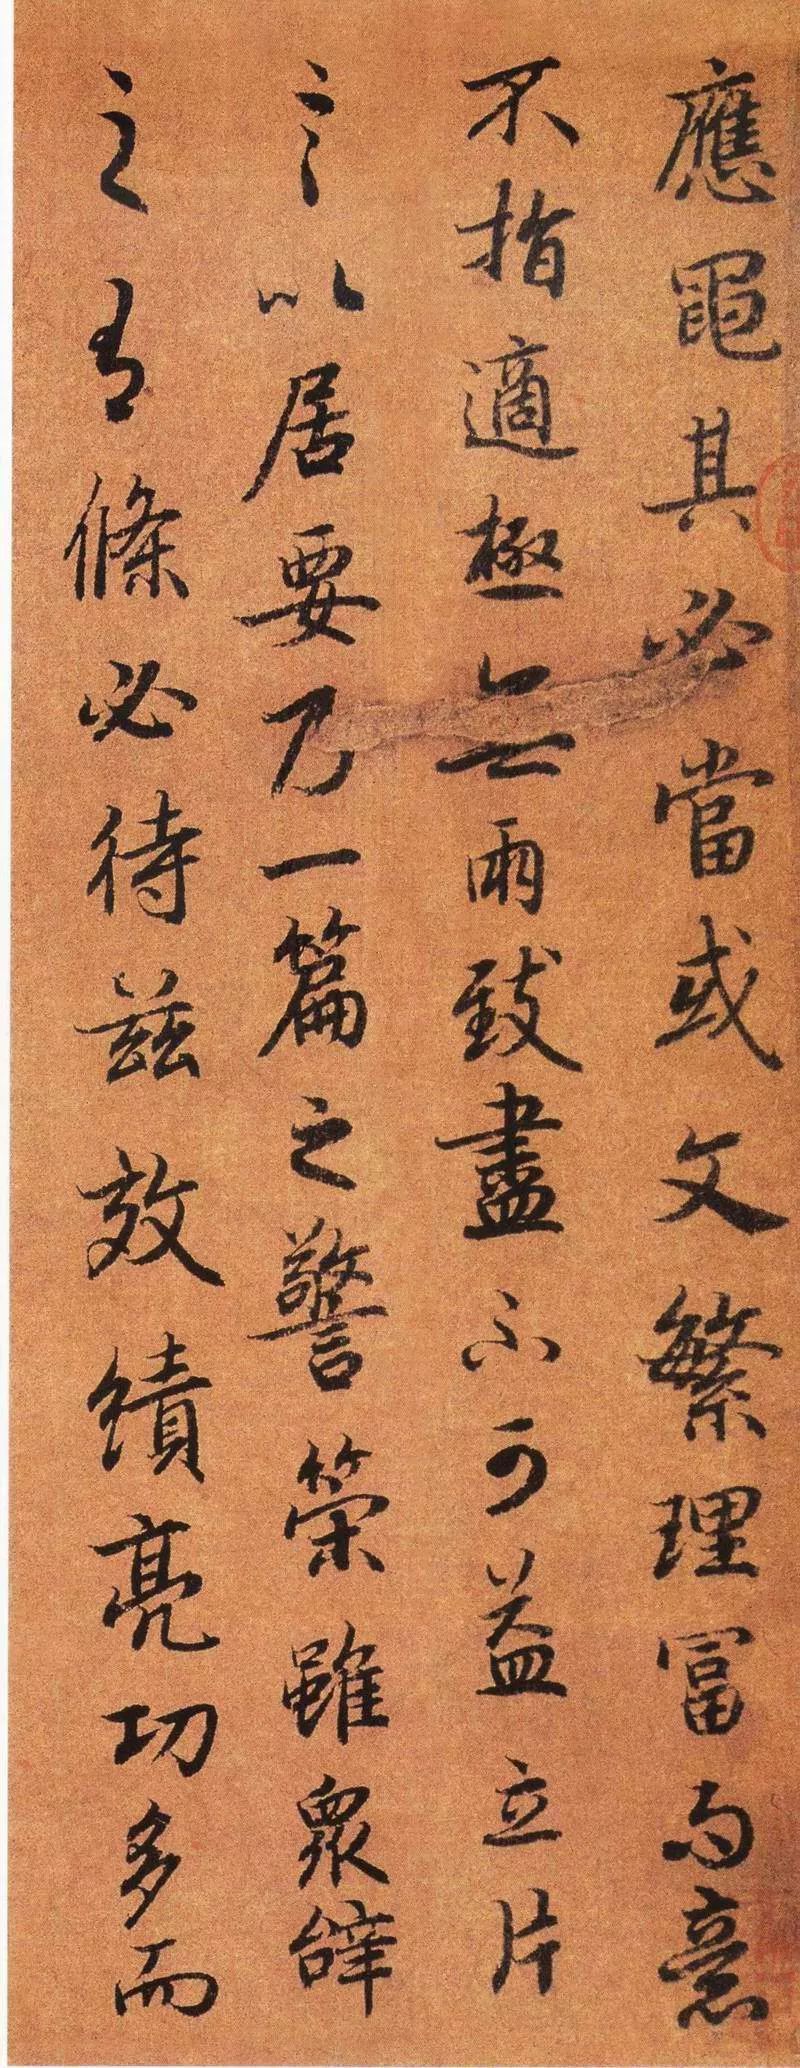 應黽其必當或文繁理富而意
不指適極無兩致盡不可益立片
言以居要乃一篇之警策雖衆辞
之有條必待兹效績亮功多而